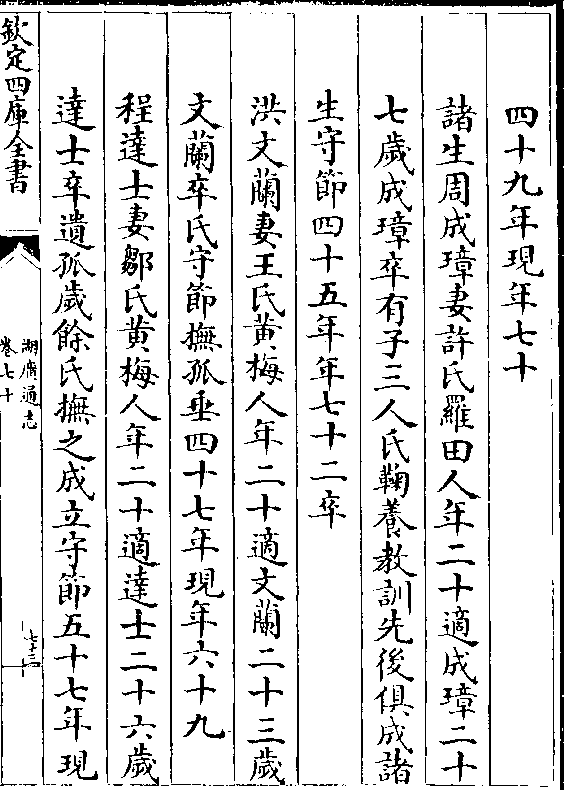 四十九年現年七十
諸生周成璋妻許氏羅田人年二十適成璋二十
七歲成璋卒有子三人氏鞠養教訓先後俱成諸
生守節四十五年年七十二卒
洪文蘭妻王氏黄梅人年二十適文蘭二十三歲
文蘭卒氏守節撫孤垂四十七年現年六十九
程達士妻鄒氏黄梅人年二十適達士二十六歲
達士卒遺孤歲餘氏撫之成立守節五十七年現
欽定四庫全書
湖廣通志
卷七十
七十三